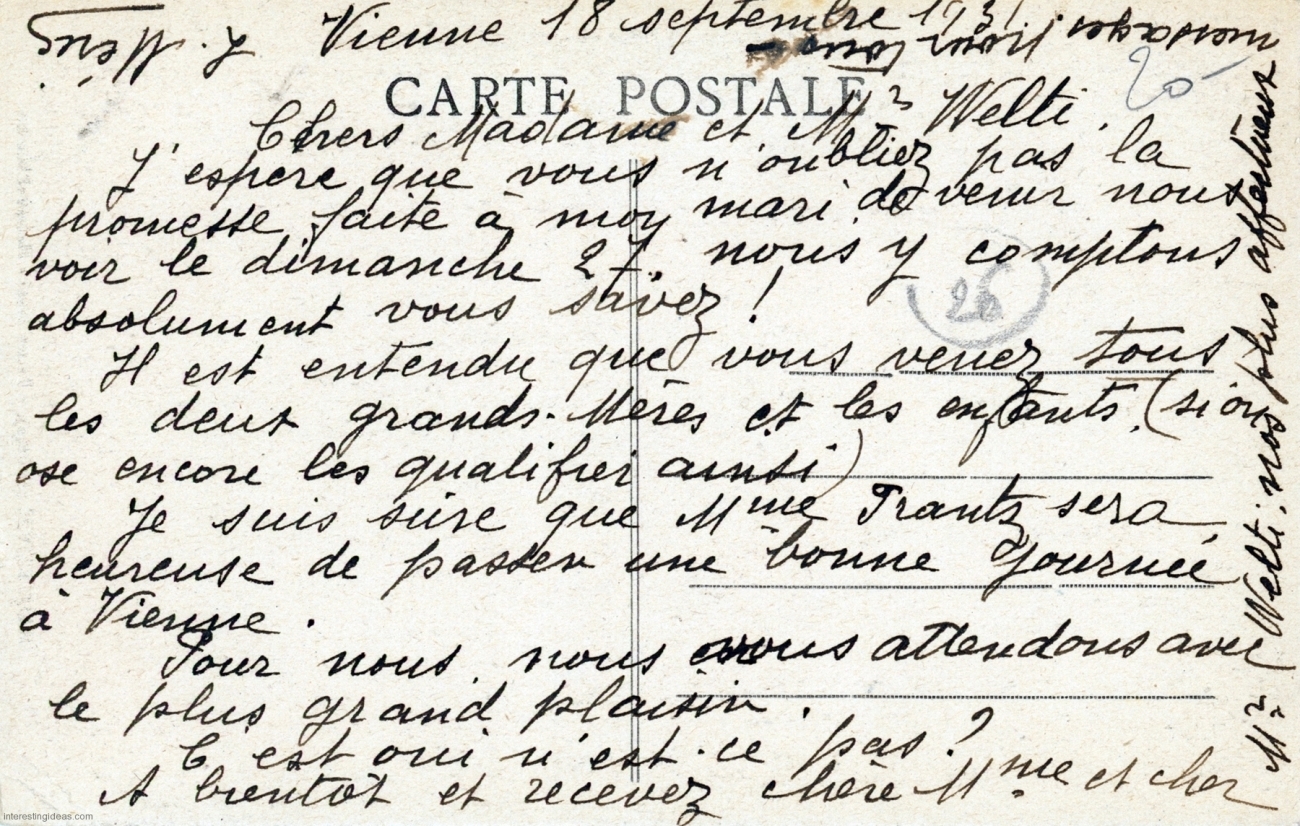 Vienne 18 septembre 193
CARTE POSTALE
20
Chers Madame et Mr Welti.
J'espere que vous n'oubliez pas la
promesse faite à moy mari de venir nous
voir le dimanche 27. nous y comptons
absolument vous savez !
26
Il est entendu que vous venez tous
les deux grands-Mères et les enfants. (si on
ose encore les qualifier ainsi)
Je suis sûre que Mme Frantz sera
heureuse de passer une bonne journée
à Vienne.
Pour nous, nous vous attendons avec
le plus grand plaisir.
C'est oui n'est-ce pas ?
A bientôt et recevez chère Mme et cher
Mr Welti, nos plus affectueux
interestingideas.com